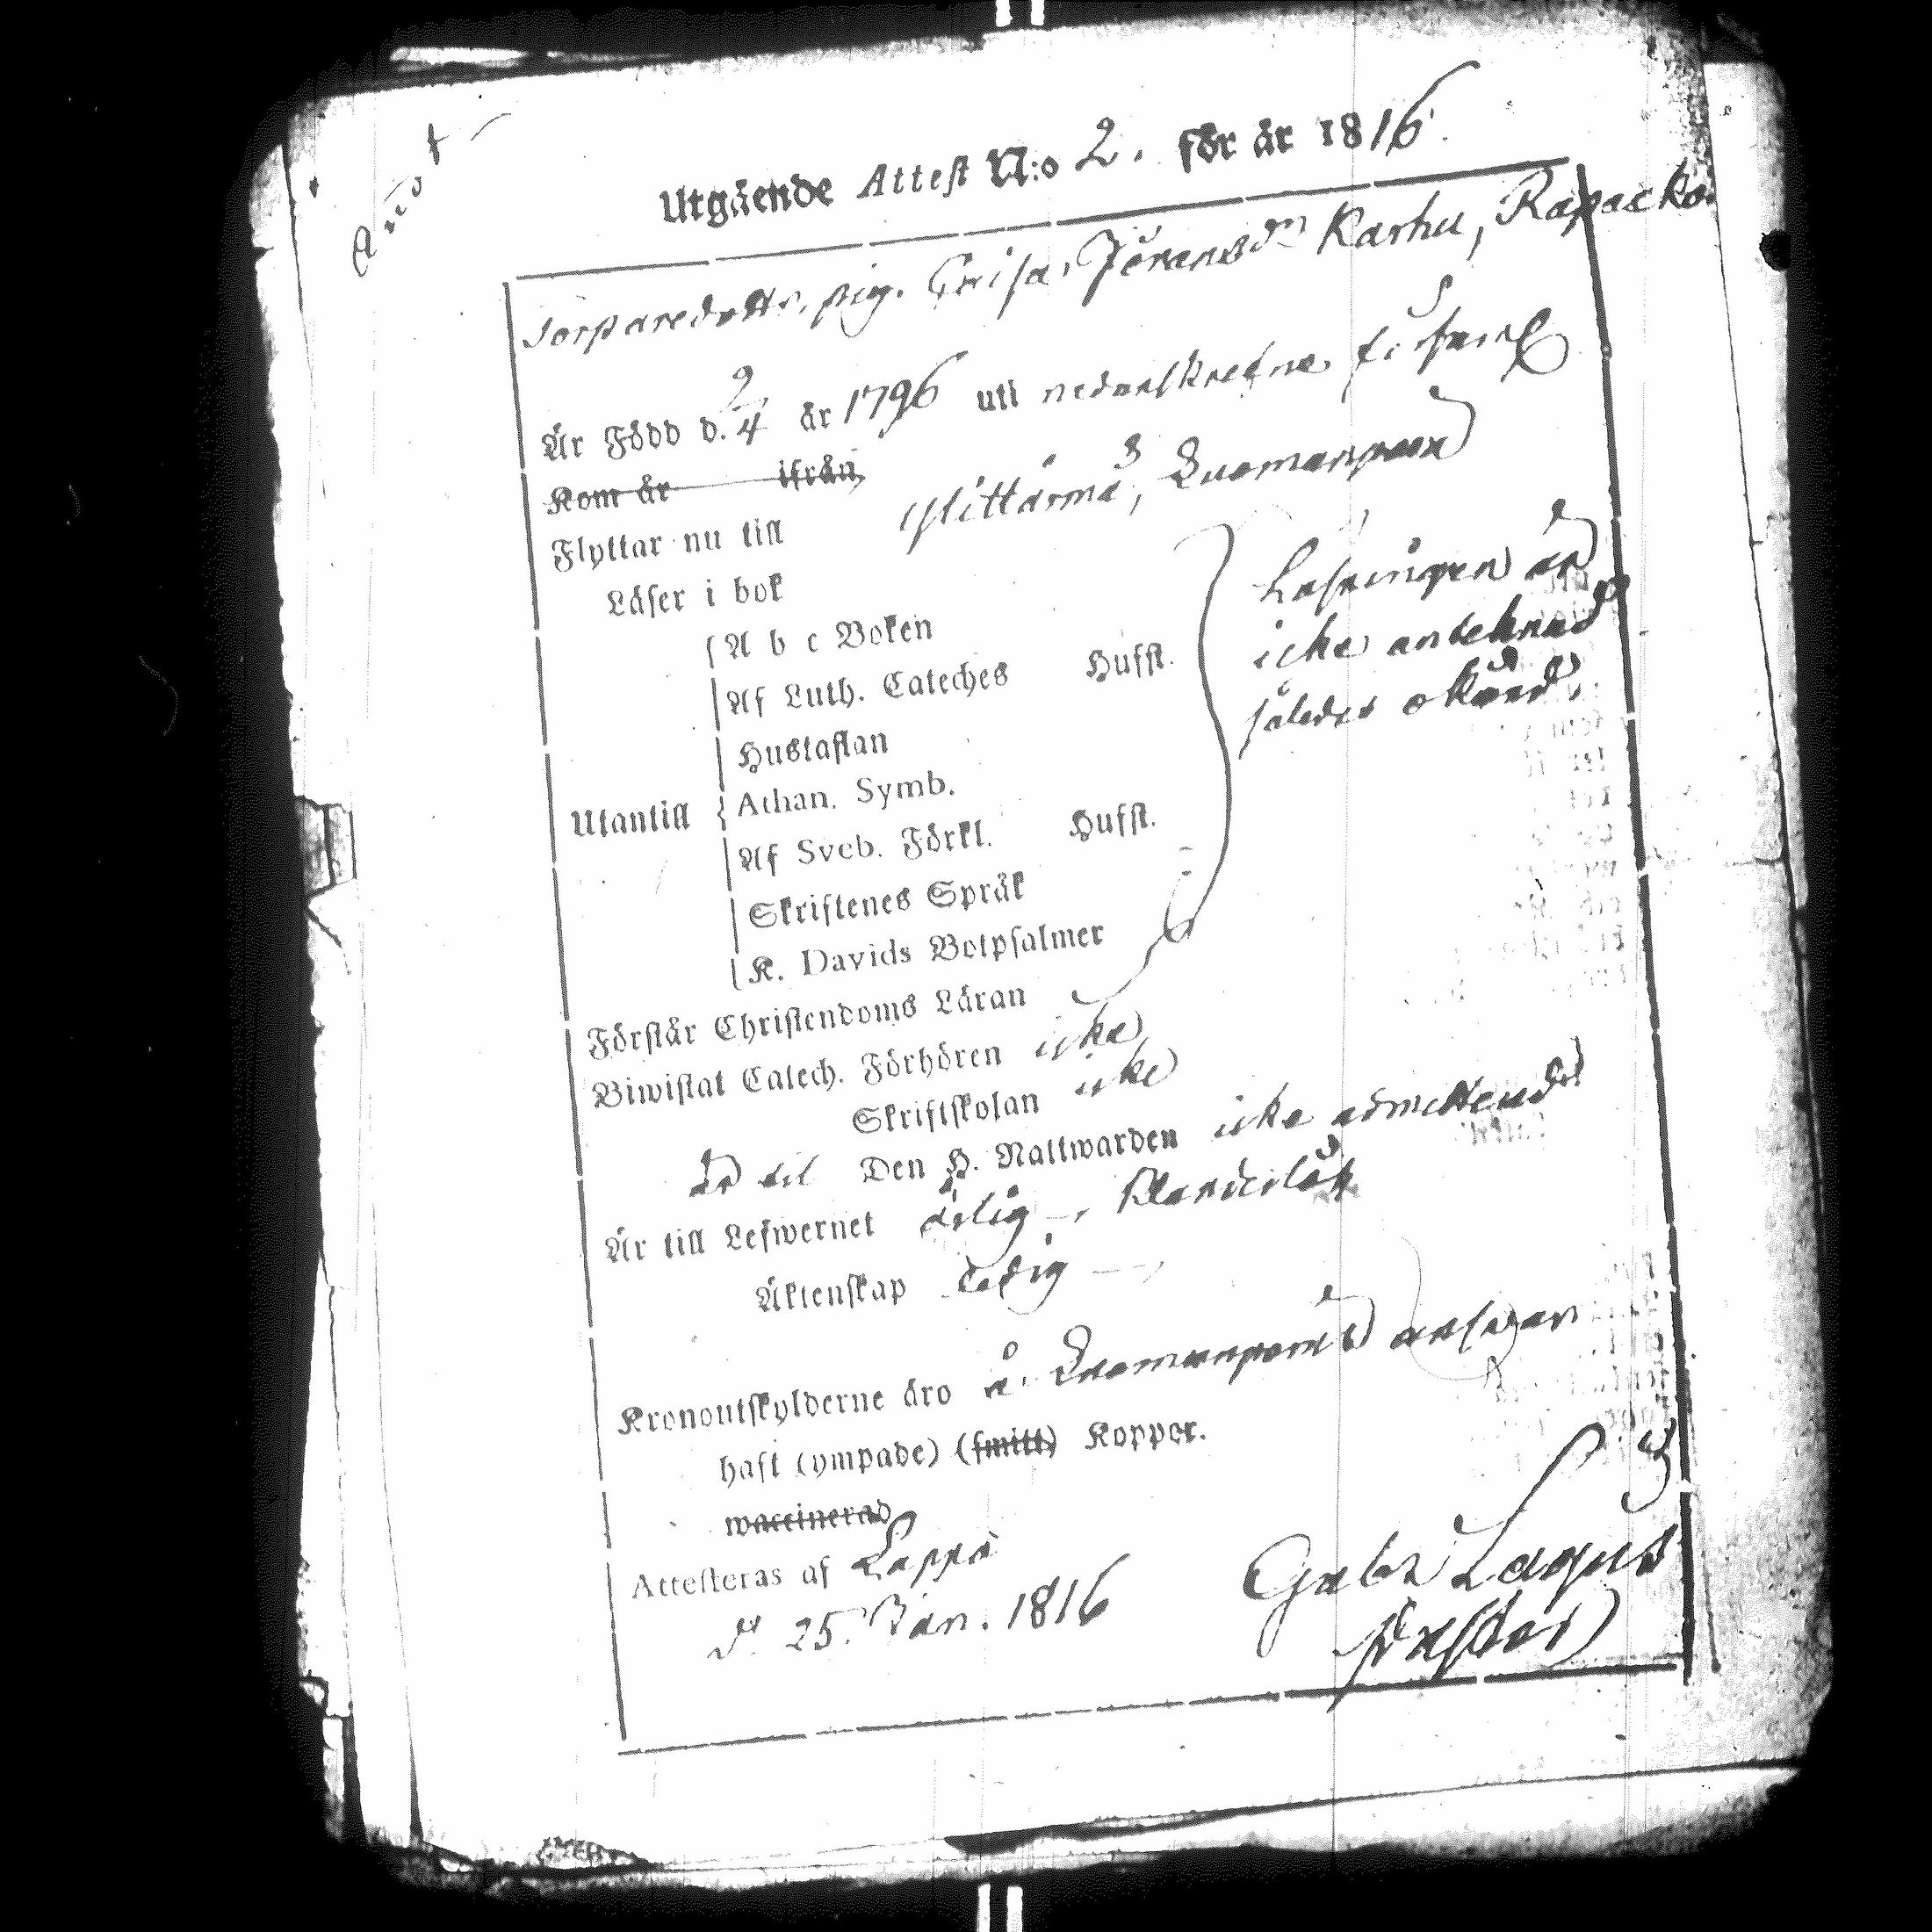 Utgående Attest N:o 2. för år 1816.
Torparedottr. pig. Caisa Jöransdr Karhu, Rapacko
Är Född d. 2/4 år 1796 uti nedanskrefne
Kom år ifrån
Flyttar nu till Wittårmå, Luomanpera
Läser i bok
A b c Boken
Af Luth. Cateches Hufst.
Hustaflan
Utantill Athan. Symb.
Af Sveb. Förkl. Hufst.
Skriftenes Språk
K. Davids Botpsalmer
Läsningen är
icke antecknad
således okänd.
Förstår Christendoms Läran
Biwistat Catech. Förhören icke
Skriftskolan icke
är til Den H. Nattwarden icke admitterad
Är till Lefwernet ärlig –,
Äktenskap ledig –,
Kronoutskylderne äro å Luomanperä answar
haft (ympade) (smitt) Koppor.
waccinerad
Attesteras af Lappo
d. 25. Jan. 1816
Gabr Lagus
Pastor